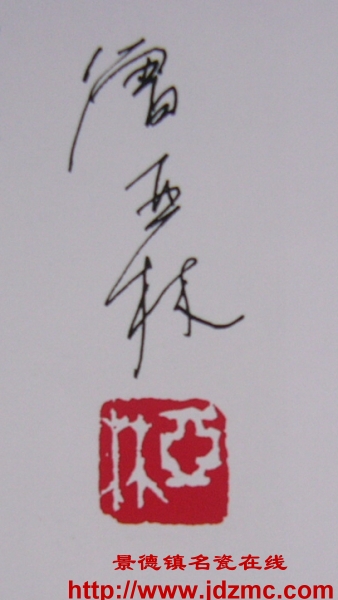 曾亚林
亞林
景德镇名瓷在线
http://www.jdzmc.com